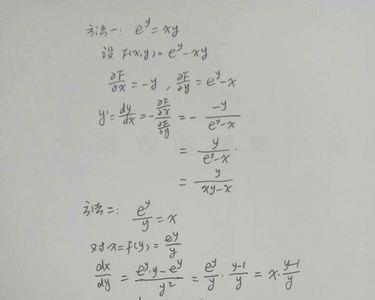 方法一: e^y = xy
设 F(x,y) = e^y - xy
∂F/∂x = -y , ∂F/∂y = e^y - x
y' = dy/dx = - (∂F/∂x)/(∂F/∂y) = - (-y)/(e^y - x)
= y/(e^y - x) .
= y/(xy - x)
方法二: e^y/y = x
对 x = f(y) = e^y/y
dx/dy = (e^y·y - e^y)/y² = e^y/y · (y-1)/y = x · (y-1)/y